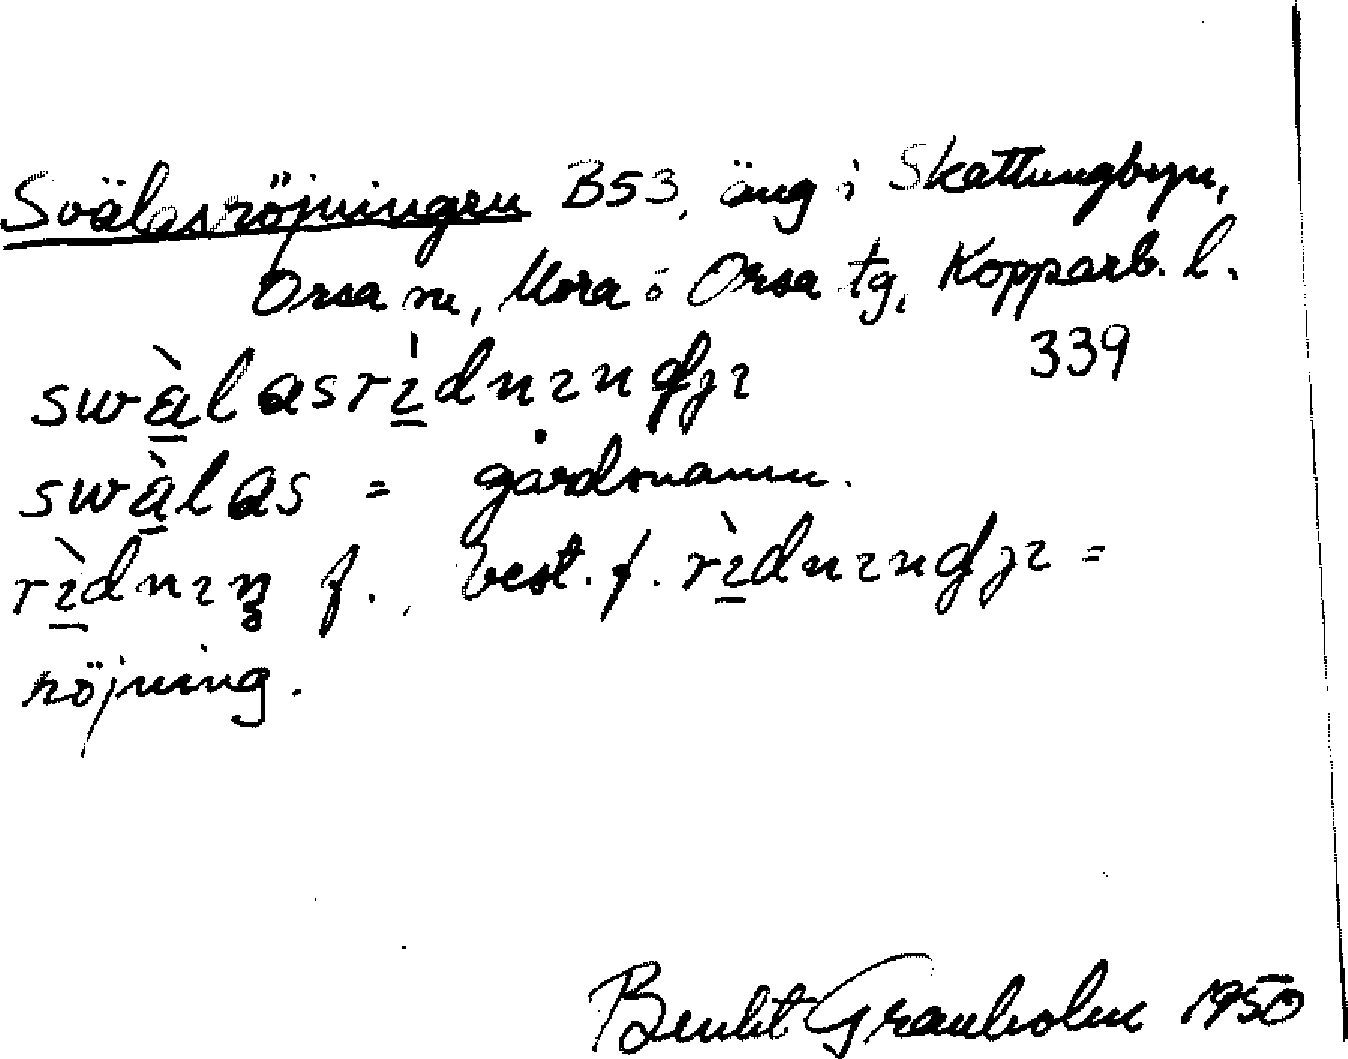 Svälasröjningen B53, äng i Skattungbyn,
Orsa sn, Mora o Orsa tg, Kopparb. l.
339
swàlasrìdnıngjı
swàlas = gårdsnamn.
rìdnıŋ f., best. f. rìdnıngjı =
röjning.
Benkt Granholm 1950